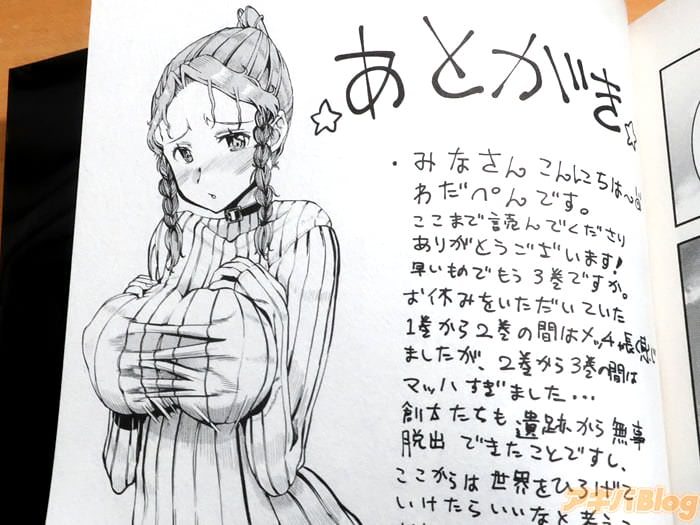 ☆あとがき☆
・みなさん こんにちは〜
わだぺんです。
ここまで読んでくださり
ありがとうございます!
早いものでもう3巻ですか。
お休みをいただいていた
1巻から2巻の間はメッチャ長く感じ
ましたが、2巻から3巻の間は
マッハすぎました...
創太たちも遺跡から無事
脱出できたことですし、
ここからは世界をひろげて
いけたらいいなと考
アキバBlog